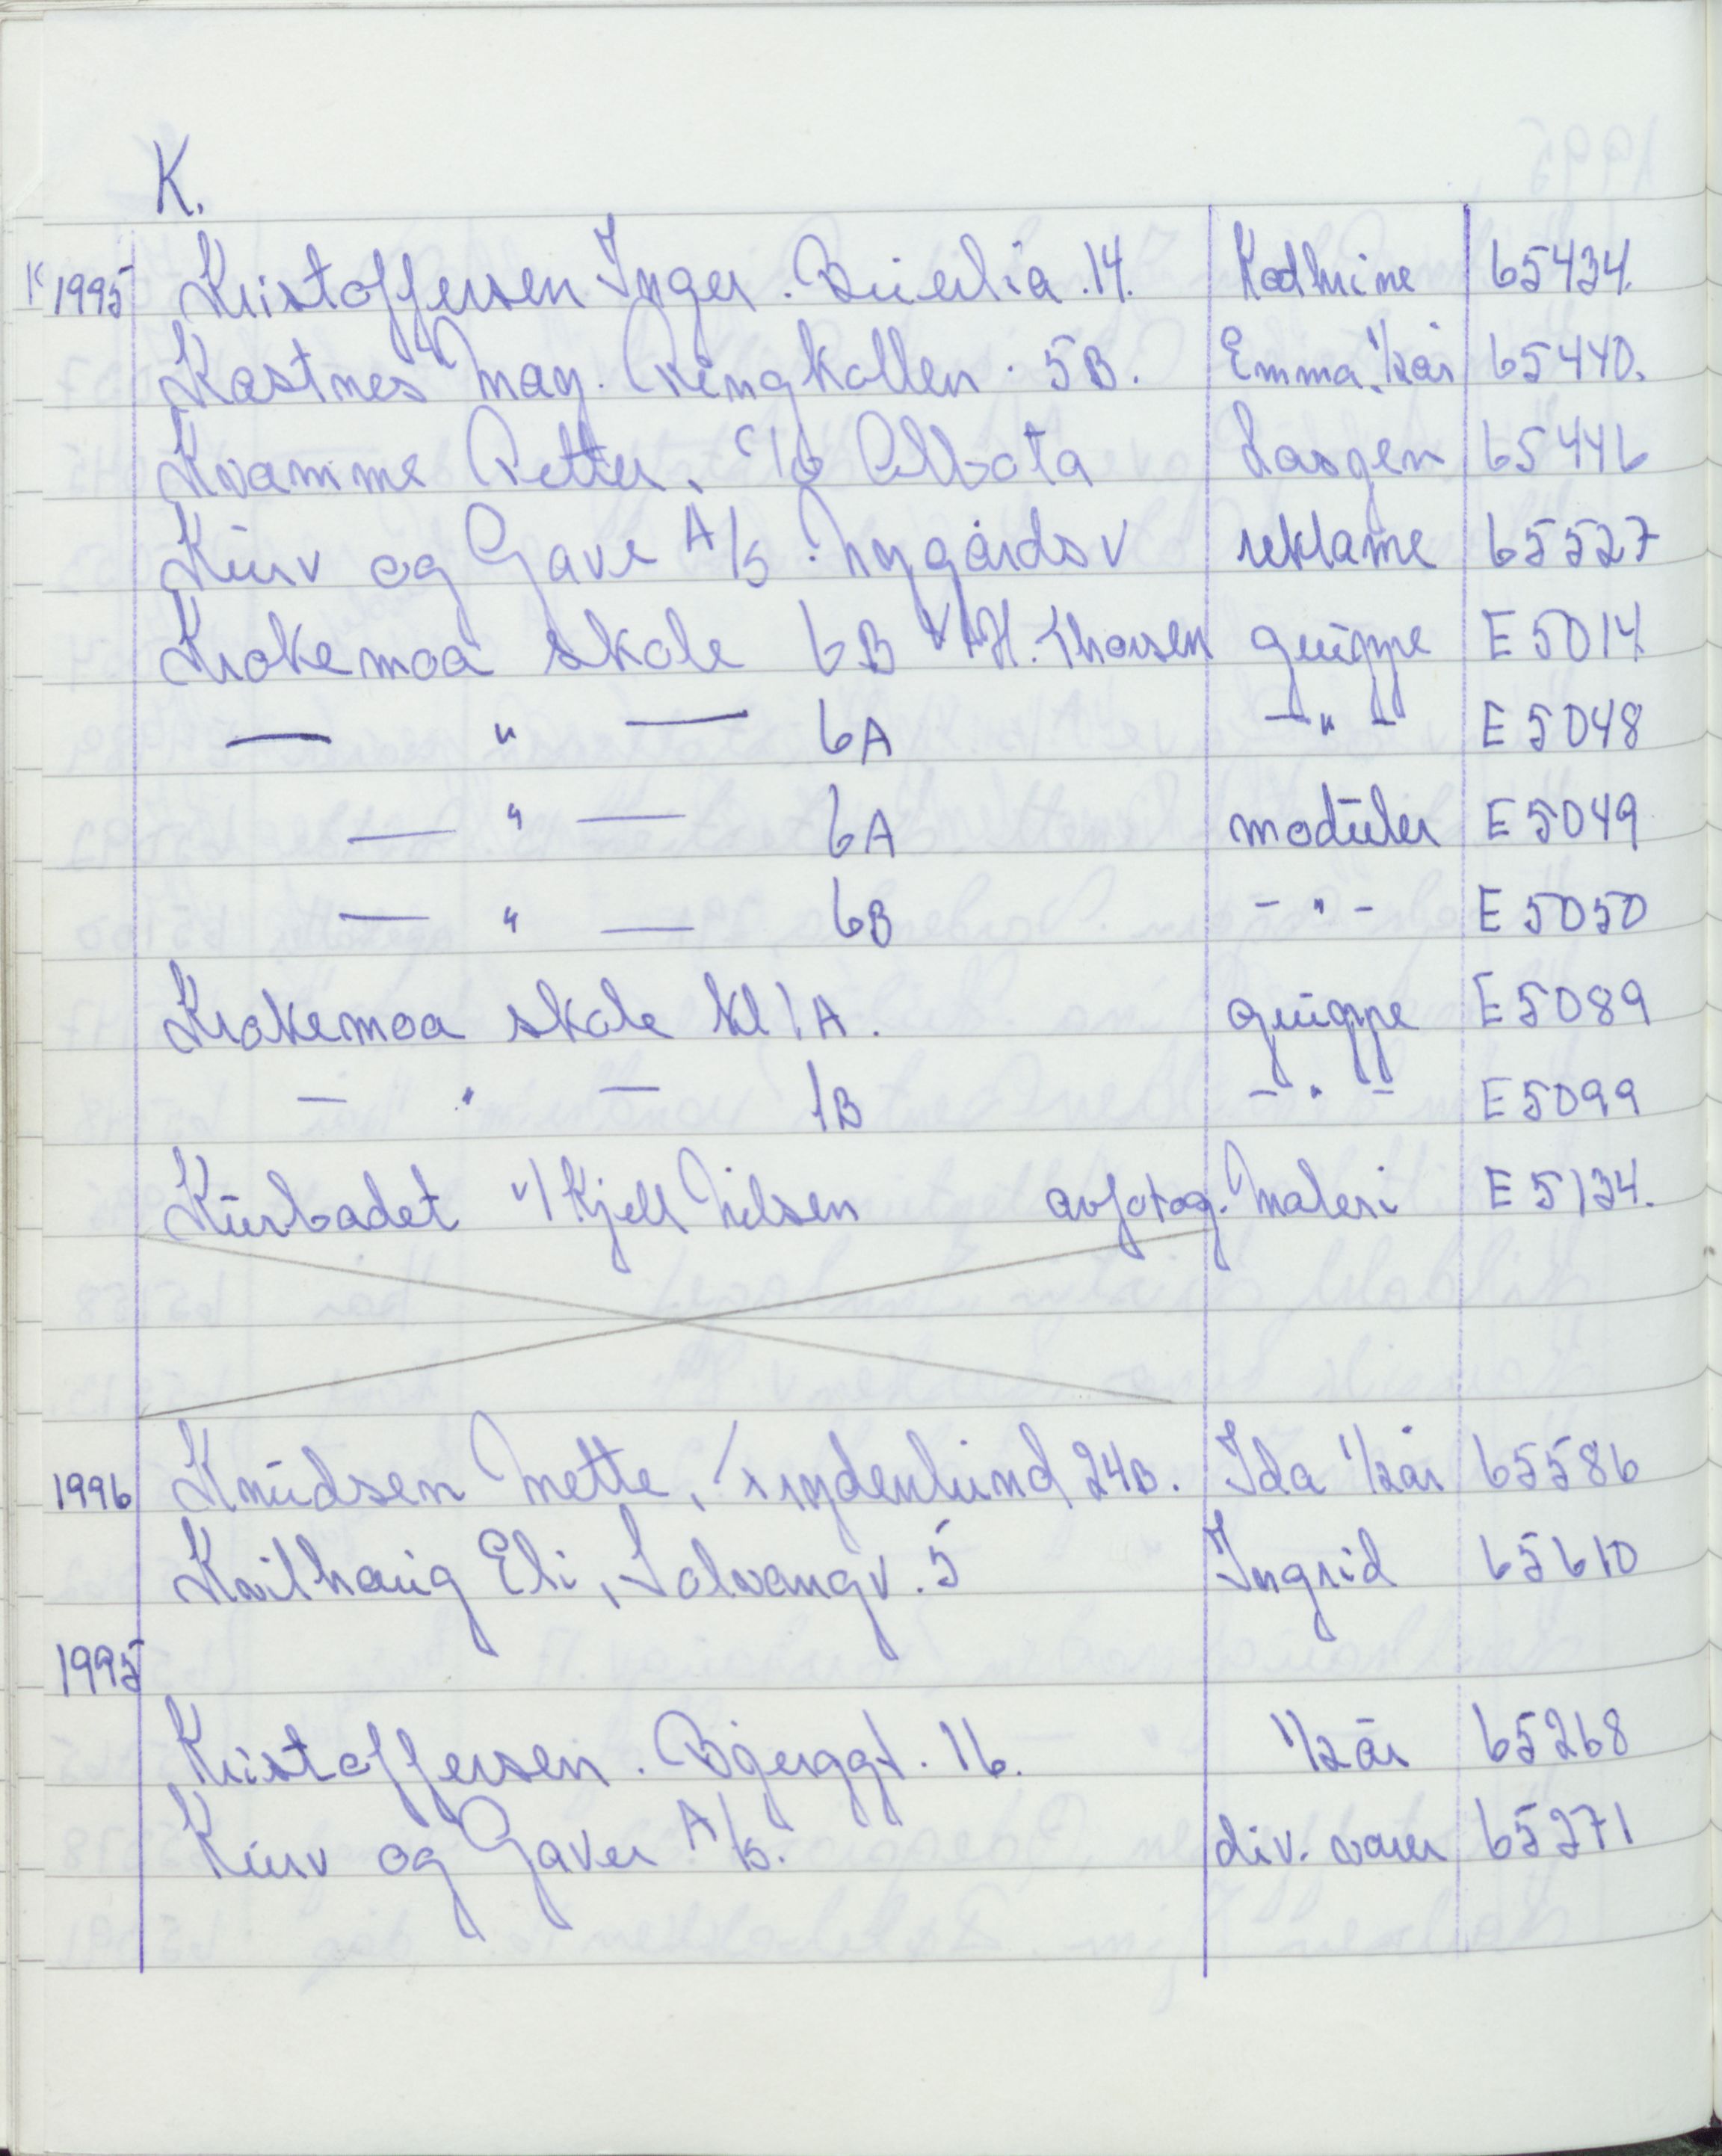 K.
K 1995 Kristoffersen Inger. Buerlia. 14. Kathrine 65434.
Kastnes May. Ringkollen. 5B. Emma. 1/2 år 65440.
Kvamme Petter, c/o Collbota Lasgen 65446
Kurv og Gave A/S. Nygårdsv reklame 65527
Krokemoa skole 6B v/ H. Thorsen gruppe E 5014
— " — 6A — " — E 5048
— " — 6A moduler E 5049
— " — 6B - " - E 5050
Krokemoa skole kl 1A. gruppe E 5089
— " — 1B - " - E 5099
Kurbadet v/ Kjell Nilsen avfotog. Maleri E 5134.
1996 Knudsen Mette, Frydenlund 24B. Ida 1/2 år 65586
Kvilhaug Eli, Solvangv. 5 Ingrid 65610
1995
Kristoffersen. Bjerggt. 16. 1/2 år 65268
Kurv og Gaver A/S. div. varer 65271